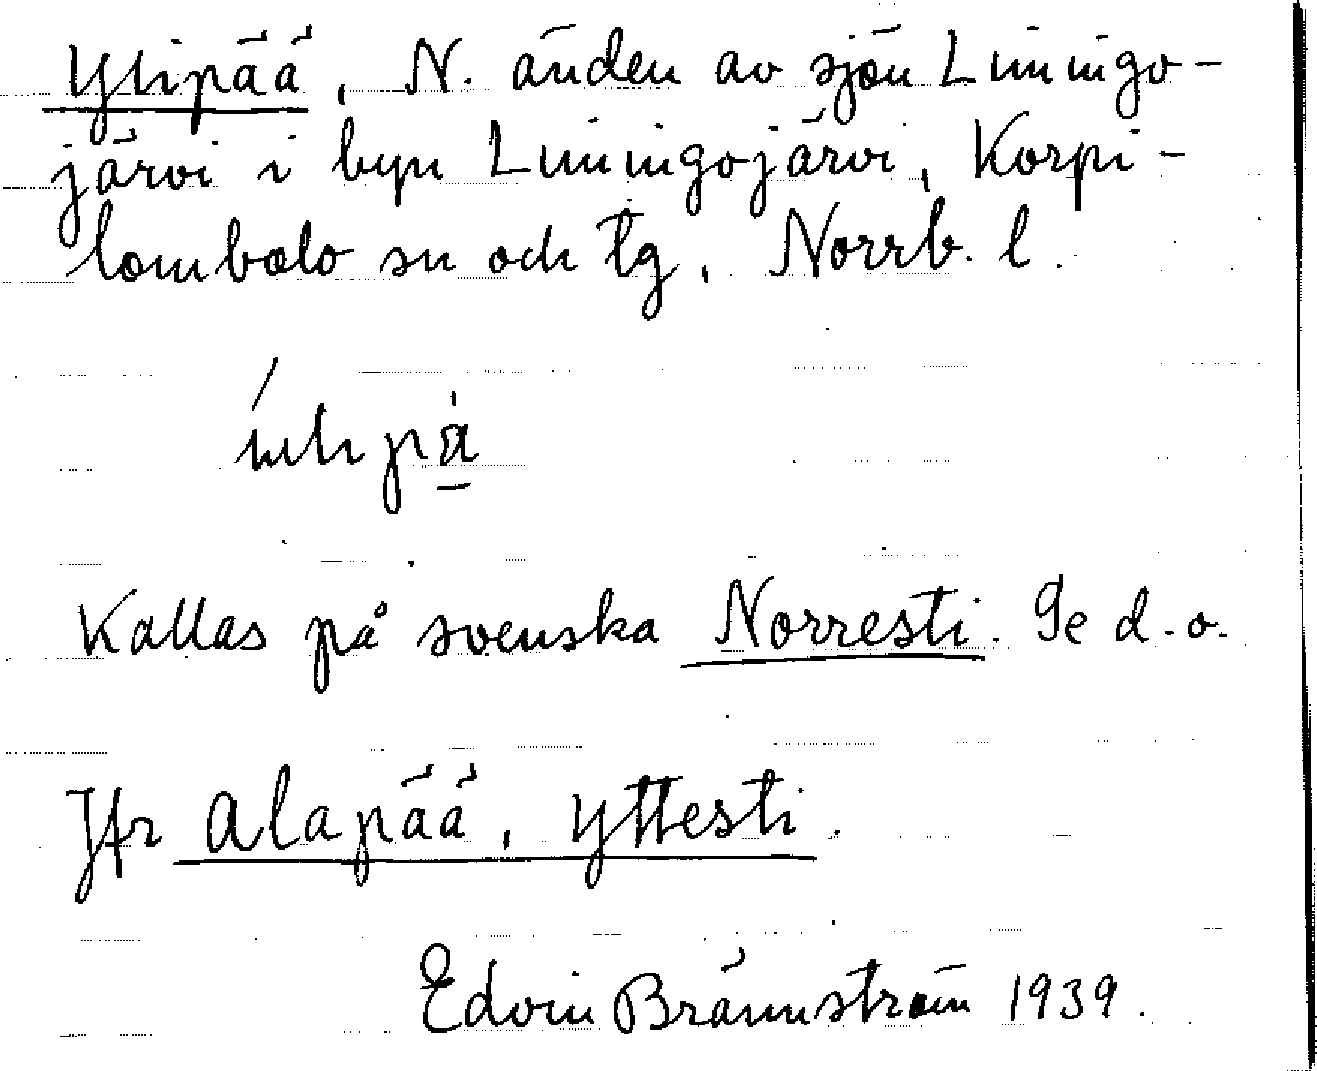 Ylipää, N. änden av sjön Liningo-
järvi i byn Liningojärvi, Korpi-
lombolo sn och tg, Norrb. l.
Kallas på svenska Norresti. Se d.o.
Jfr Alapää, Yttesti.
Edvin Brännström 1939.